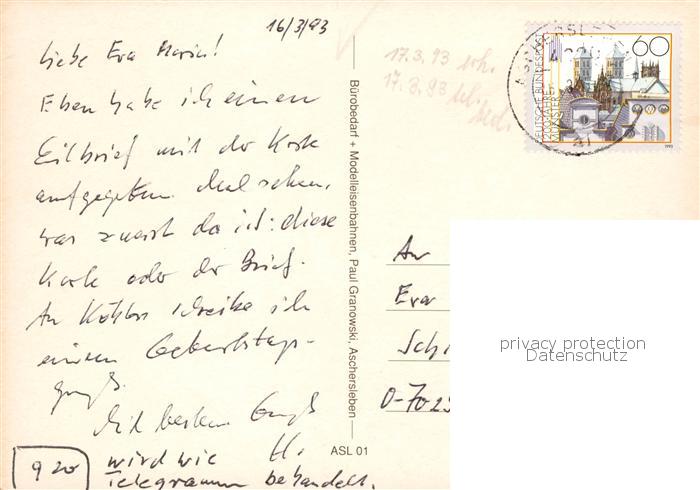 16/3/93
Liebe Eva Maria!
Eben habe ich einen
Eilbrief mit der Karte
aufgegeben. Mal sehen,
was zuerst da ist: diese
Karte oder der Brief.
An Köhlers schreibe ich
einen Geburtstags-
gruß.
Mit besten Gruß
H.
9 20
wird wie
Telegramm behandelt.
17.3.93 erh.
17.3.93
Bürobedarf + Modelleisenbahnen, Paul Granowski, Aschersleben
ASL 01
60
DEUTSCHE BUNDESPOST
1200 JAHRE
MÜNSTER
1993
An
Eva
Schi
O-702
privacy protection
Datenschutz